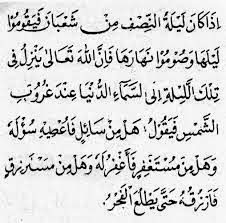 اِذَا كَانَ لَيْلَةُ النِّصْفِ مِنْ شَعْبَانَ فَيَقُوْمُوْا
لَيْلَهَا وَصُوْمُوْا نَهَارَهَا فَاِنَّ اللهَ تَعَالٰى يَنْزِلُ فِى
تِلْكَ اللَّيْلَةِ اِلَى السَّمَاءِ الدُّنْيَا عِنْدَ غُرُوْبِ
الشَّمْسِ فَيَقُوْلُ: هَلْ مِنْ سَائِلٍ فَاُعْطِيَهِ سُؤْلَهُ
وَهَلْ مِنْ مُسْتَغْفِرٍ فَاَغْفِرَلَهُ وَهَلْ مِنْ مُسْتَرْزِقٍ
فَاَرْزُقَهُ حَتّٰى يَطْلُعَ الْفَجْرُ